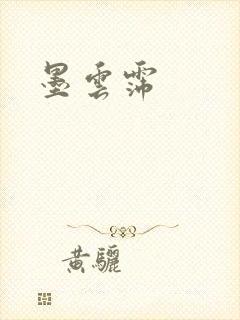 墨雲霈
黄驪